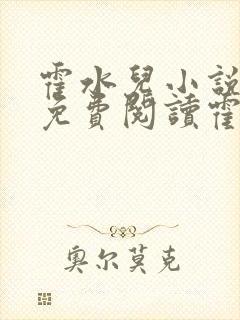 霍水兒小說
免費閱讀霍
奥尔莫克